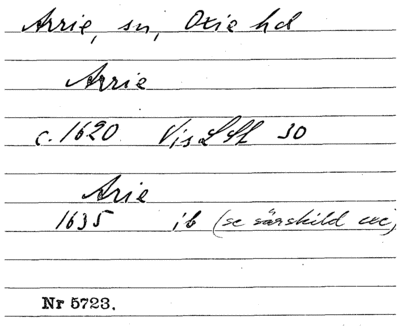 Arrie, sn, Oxie hd
Arrie
c. 1620 Vis LSt 30
Arie
1635 ib (se särskild exc)
Nr 5723.